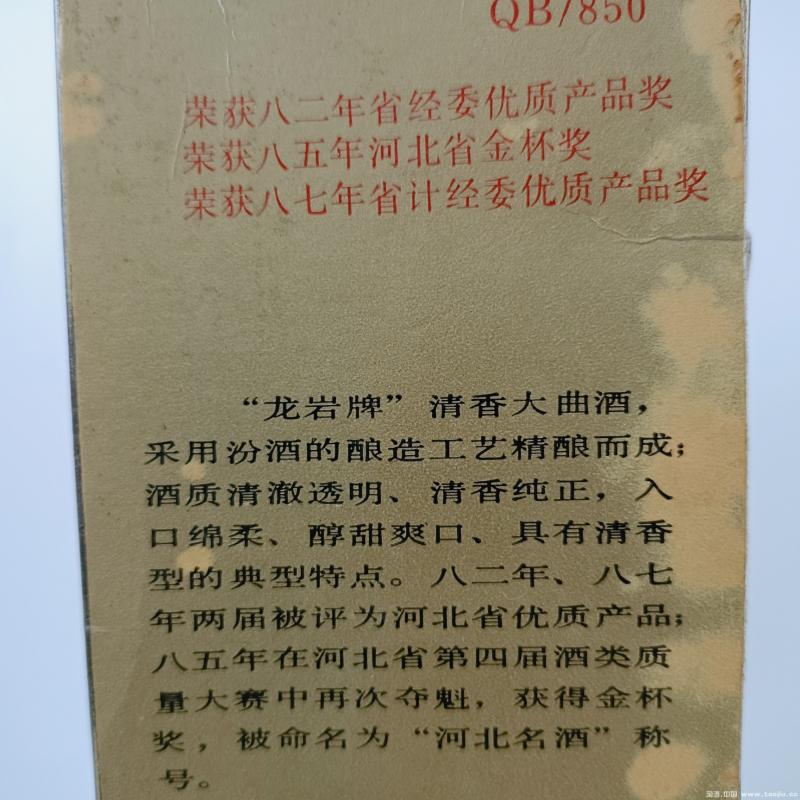 QB/850
荣获八二年省经委优质产品奖
荣获八五年河北省金杯奖
荣获八七年省计经委优质产品奖
“龙岩牌”清香大曲酒，
采用汾酒的酿造工艺精酿而成；
酒质清澈透明、清香纯正，入
口绵柔、醇甜爽口、具有清香
型的典型特点。八二年、八七
年两届被评为河北省优质产品；
八五年在河北省第四届酒类质
量大赛中再次夺魁，获得金杯
奖，被命名为“河北名酒”称
号。